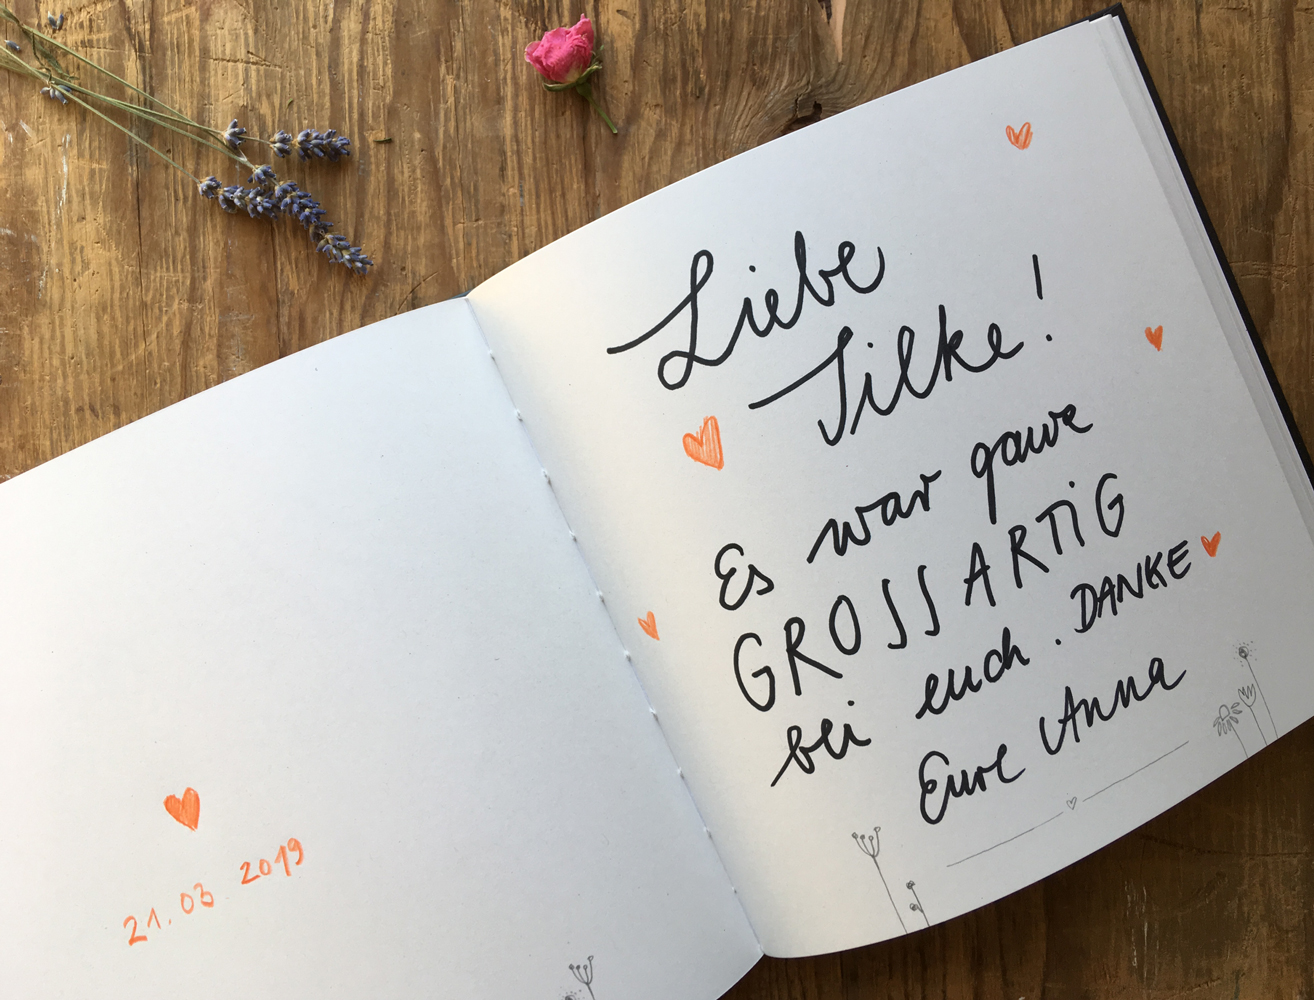 21.03 2019
Liebe
Silke!
Es war
GROSSARTIG
bei euch. DANKE
Eure Anna